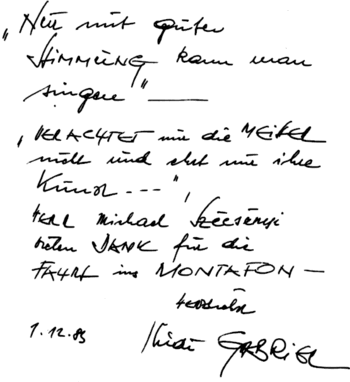 „Nur mit guter
STIMMUNG kann man
singen" —
„VERACHTET mir die MEISTER
nicht und ehrt mir ihre
Kunst ---",
HERR Michael Szécsényi
vielen DANK für die
FAHRT ins MONTAFON —
herzlichst
1.12.85 Heidi GABRIEL